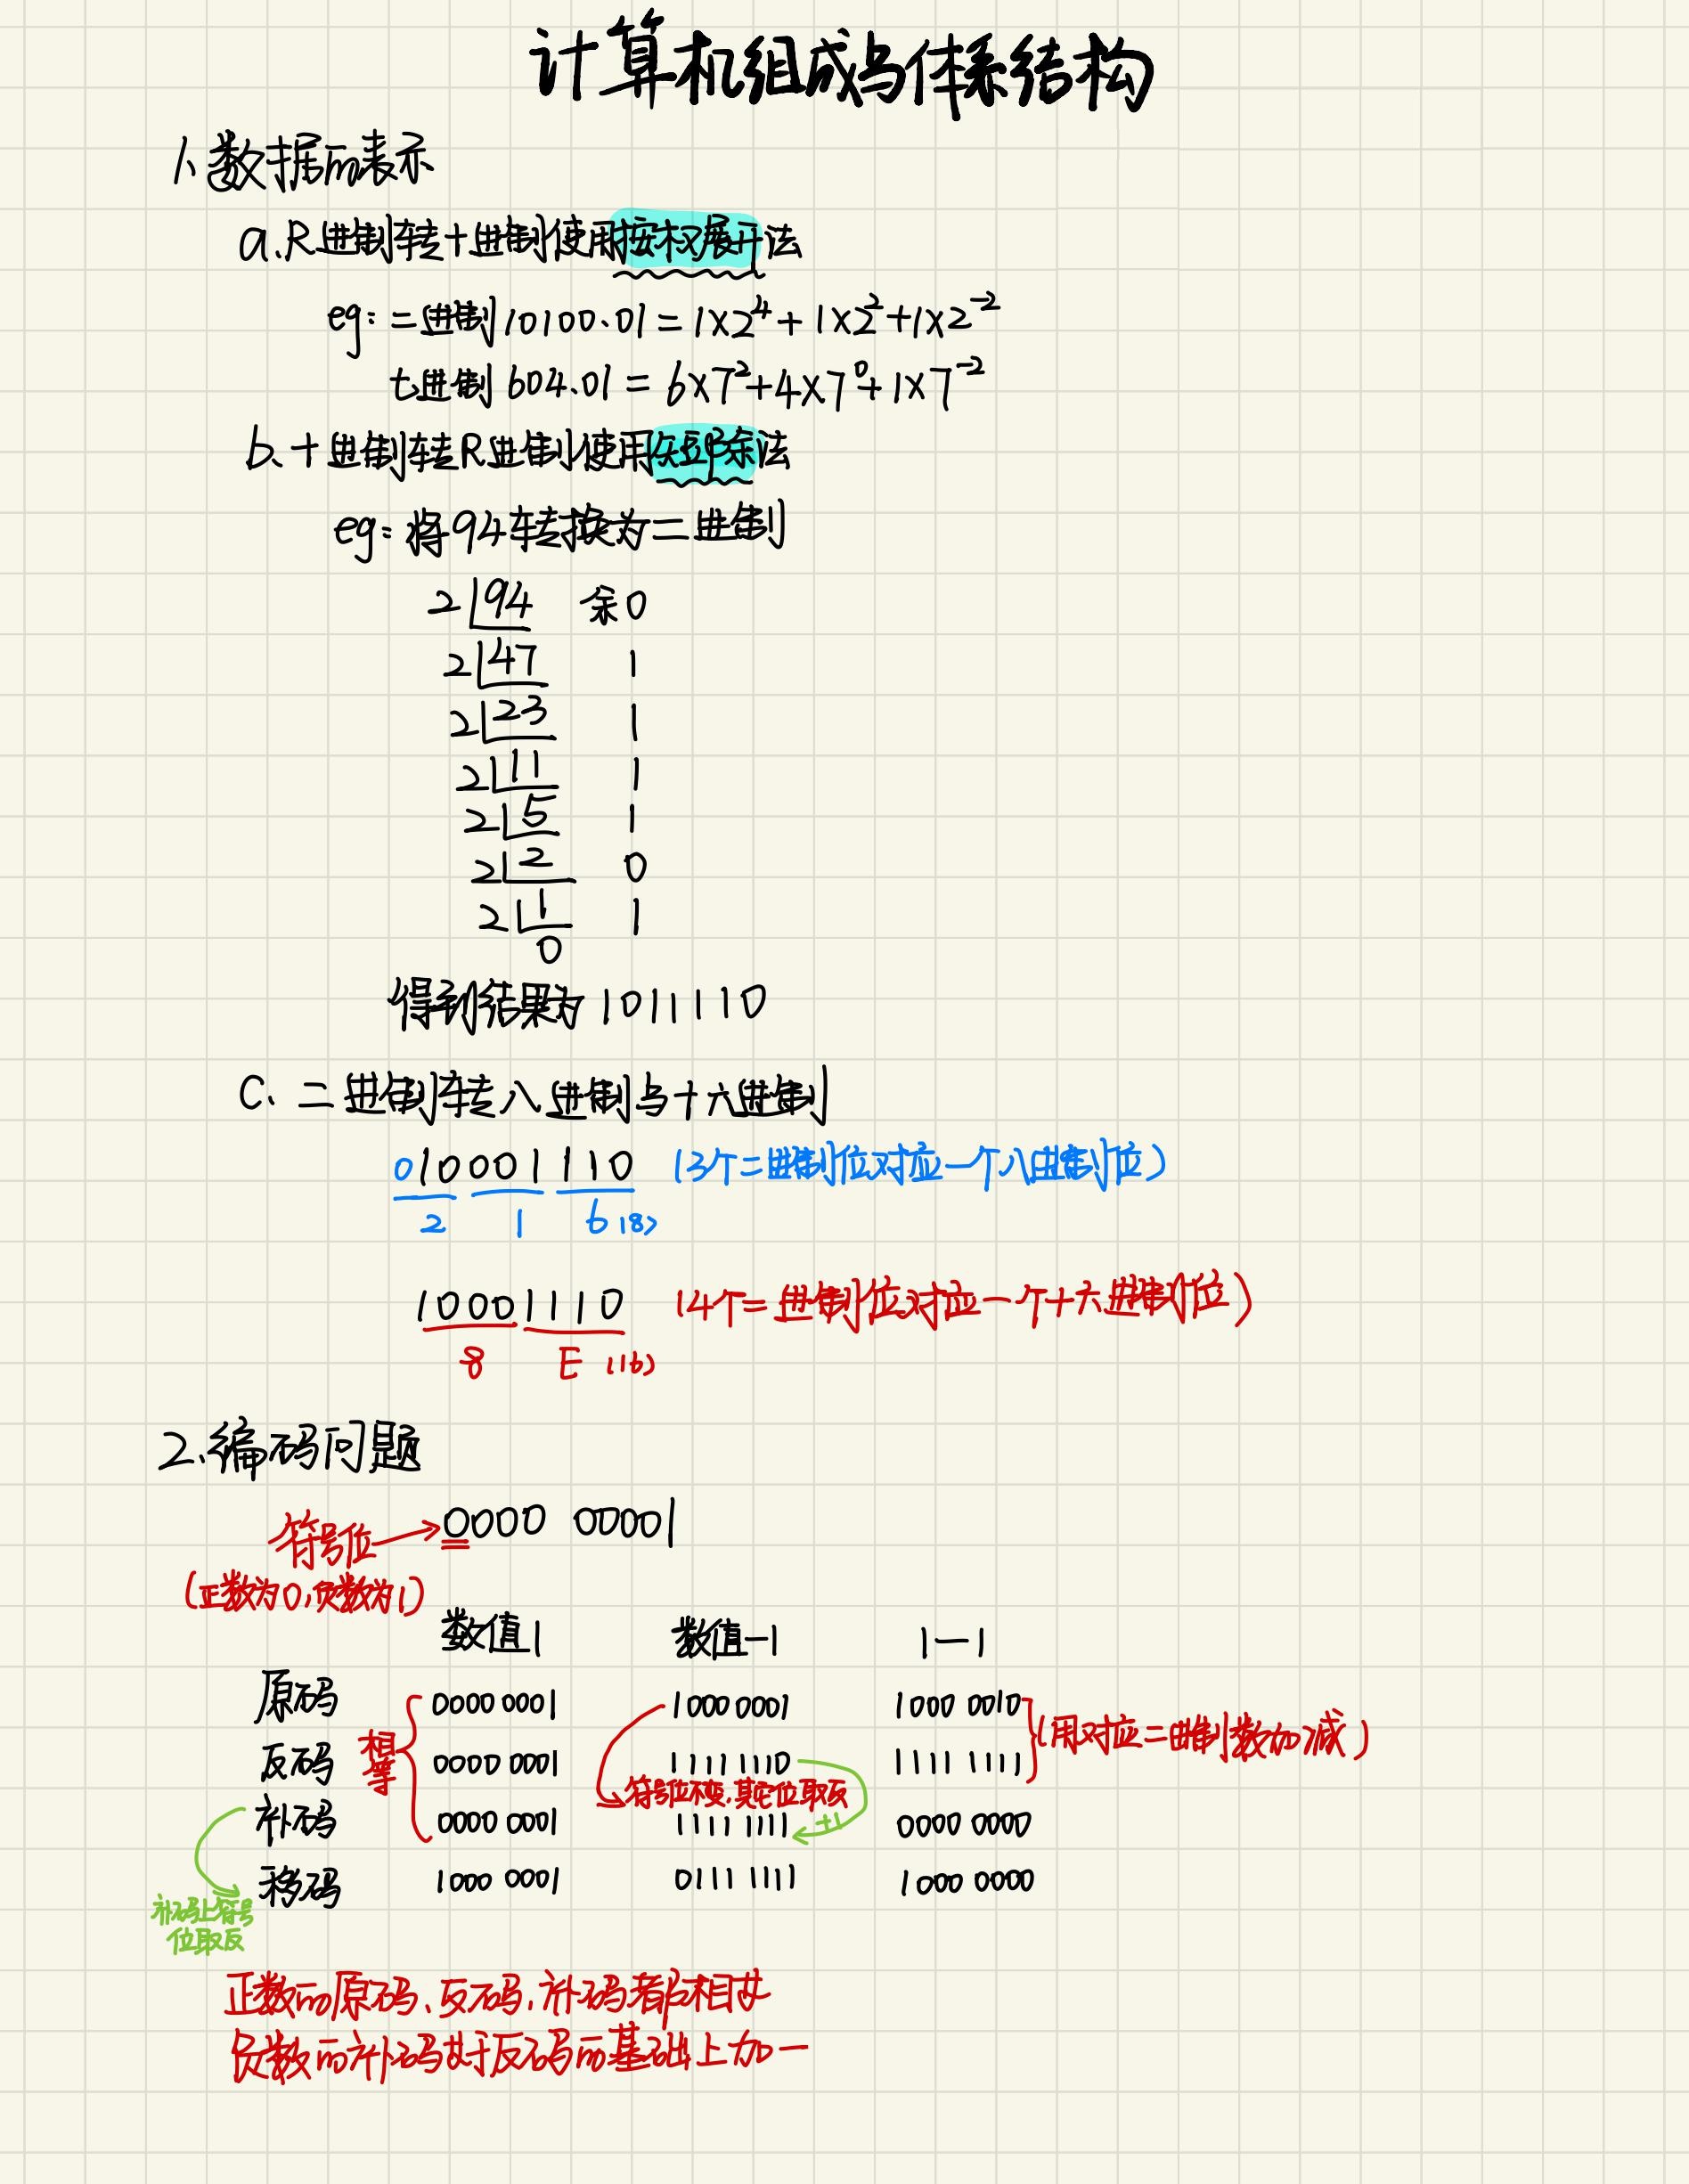 计算机组成与体系结构
1、数据的表示
a、R进制转十进制使用按权展开法
eg：二进制10100.01 = 1×2⁴ + 1×2² + 1×2⁻²
七进制604.01 = 6×7² + 4×7⁰ + 1×7⁻²
b、十进制转R进制使用短除法
eg：将94转换为二进制
2 94 余0
2 47 1
2 23 1
2 11 1
2 5 1
2 2 0
2 1 1
0
得到结果为1011110
C、二进制转八进制与十六进制
010001110 (3个二进制位对应一个八进制位)
2 1 6 (8)
10001110 (4个二进制位对应一个十六进制位)
8 E (16)
2、编码问题
符号位 → 0000 00001
(正数为0，负数为1)
数值1 数值-1 1-1
原码 0000 0001 1000 0001 1000 0010
(用对应二进制数加减)
相等
反码 0000 0001 1111 1110 1111 1111
符号位不变，其它位取反
补码 0000 0001 1111 1111 0000 0000
+1
移码 1000 0001 0111 1111 1000 0000
补码上符号
位取反
正数的原码、反码、补码都相等
负数的补码等于反码的基础上加一